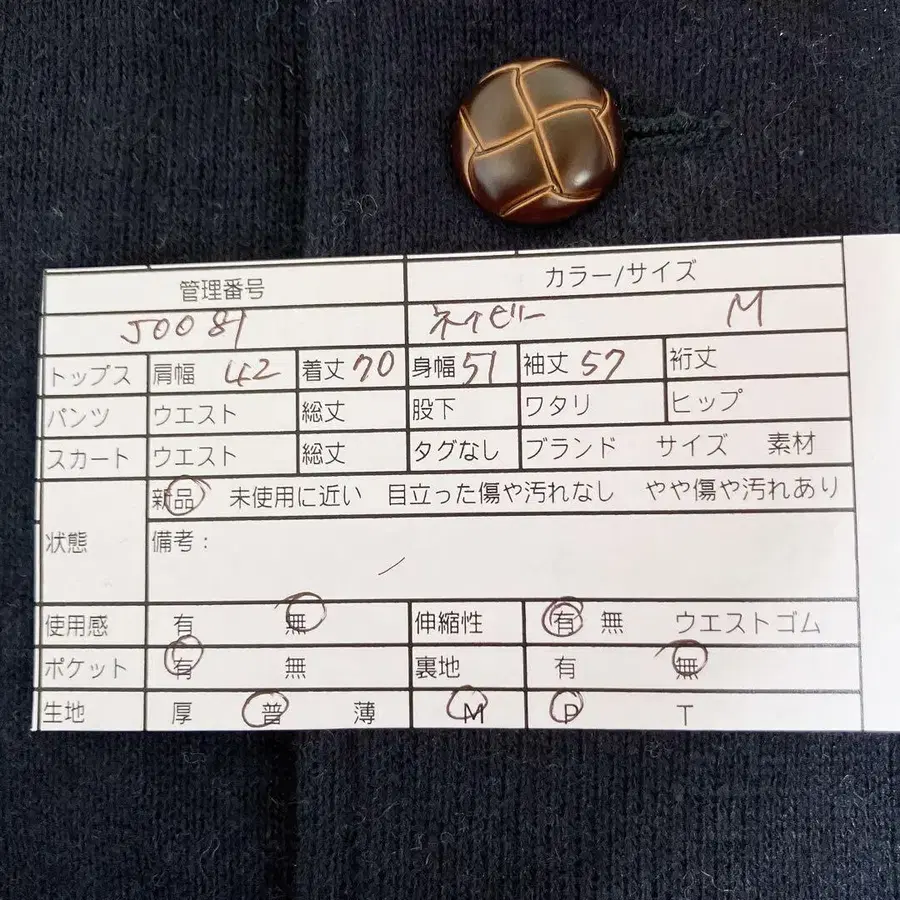 管理番号 カラー/サイズ
J0081 ネイビー M
トップス 肩幅 42 着丈 70 身幅 51 袖丈 57 裄丈
パンツ ウエスト 総丈 股下 ワタリ ヒップ
スカート ウエスト 総丈 タグなし ブランド サイズ 素材
状態 新品 未使用に近い 目立った傷や汚れなし やや傷や汚れあり
備考：
使用感 有 無 伸縮性 有 無 ウエストゴム
ポケット 有 無 裏地 有 無
生地 厚 普 薄 M P T